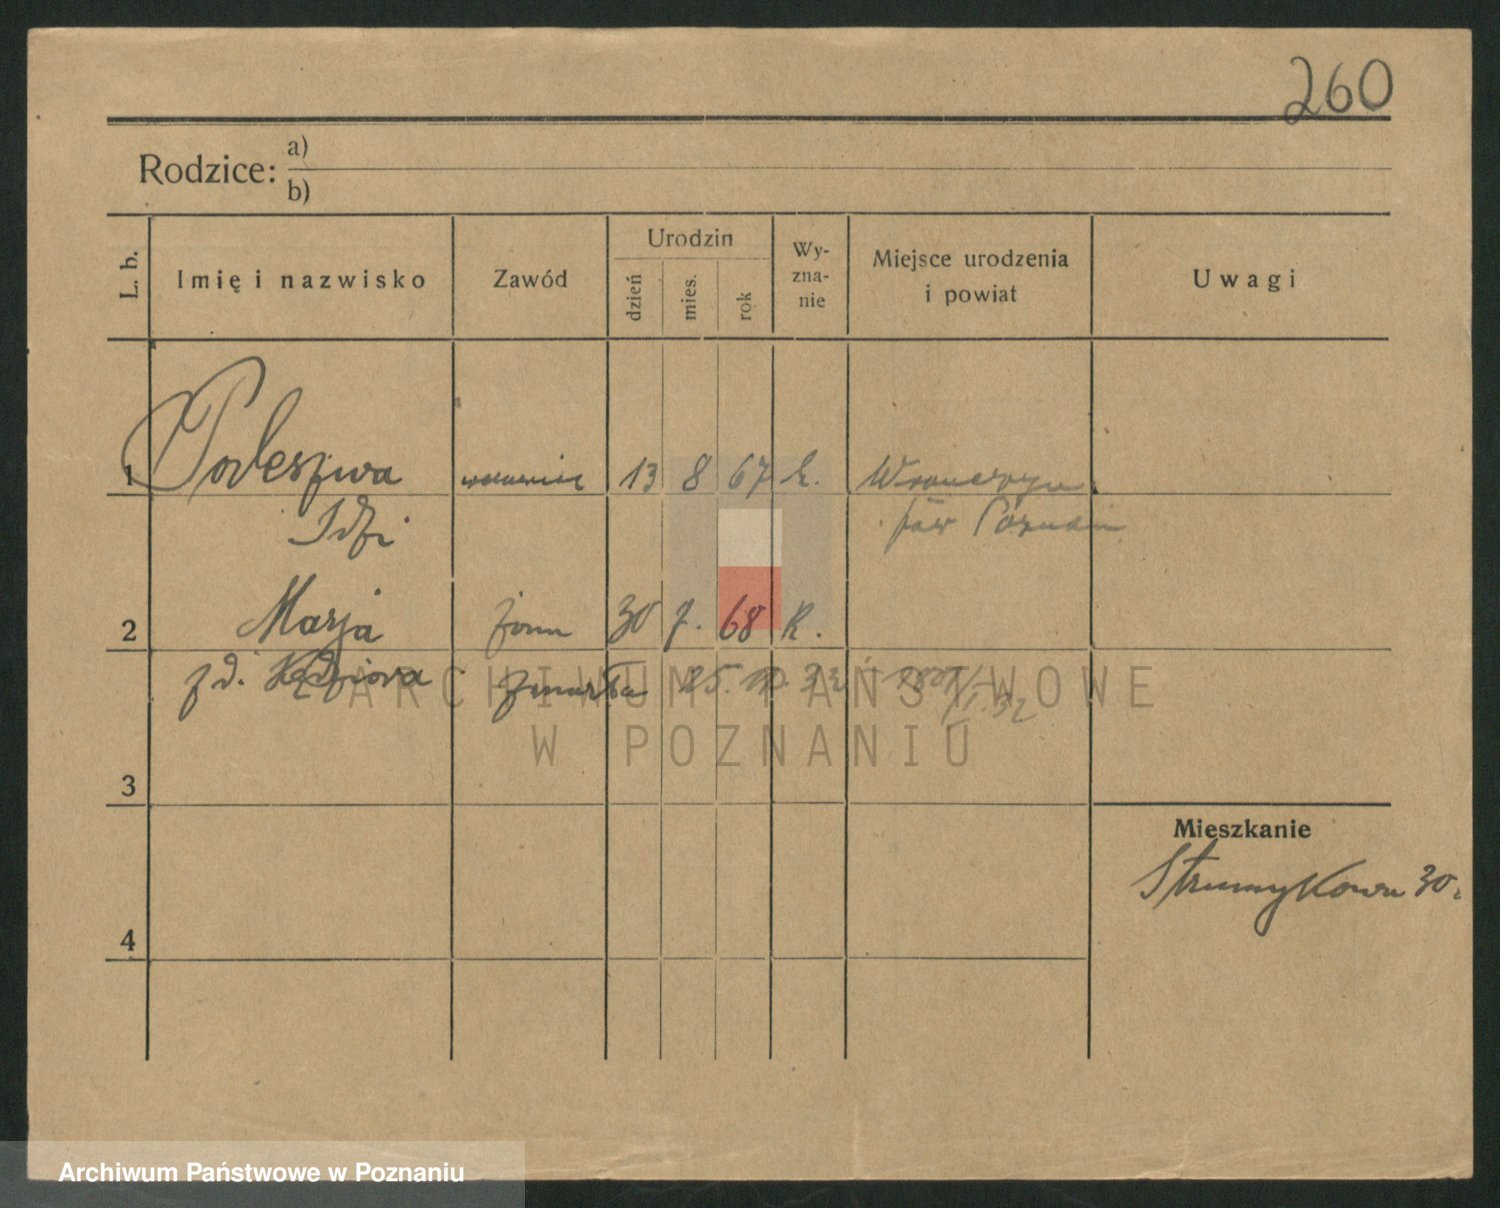 260
Rodzice: a)
b)
L. b. Imię i nazwisko Zawód Urodzin dzień mies. rok Wy-zna-nie Miejsce urodzenia i powiat Uwagi
1 Podeszwa 13 8 67 k. Wronczyn
Idzi pow Poznań
2 Marja żona 30 7. 68 K.
z d. Kędziora zmarła 25.
ARCHIWUM PAŃSTWOWE
W POZNANIU
3
Mieszkanie
Strumykowa 30
4
Archiwum Państwowe w Poznaniu